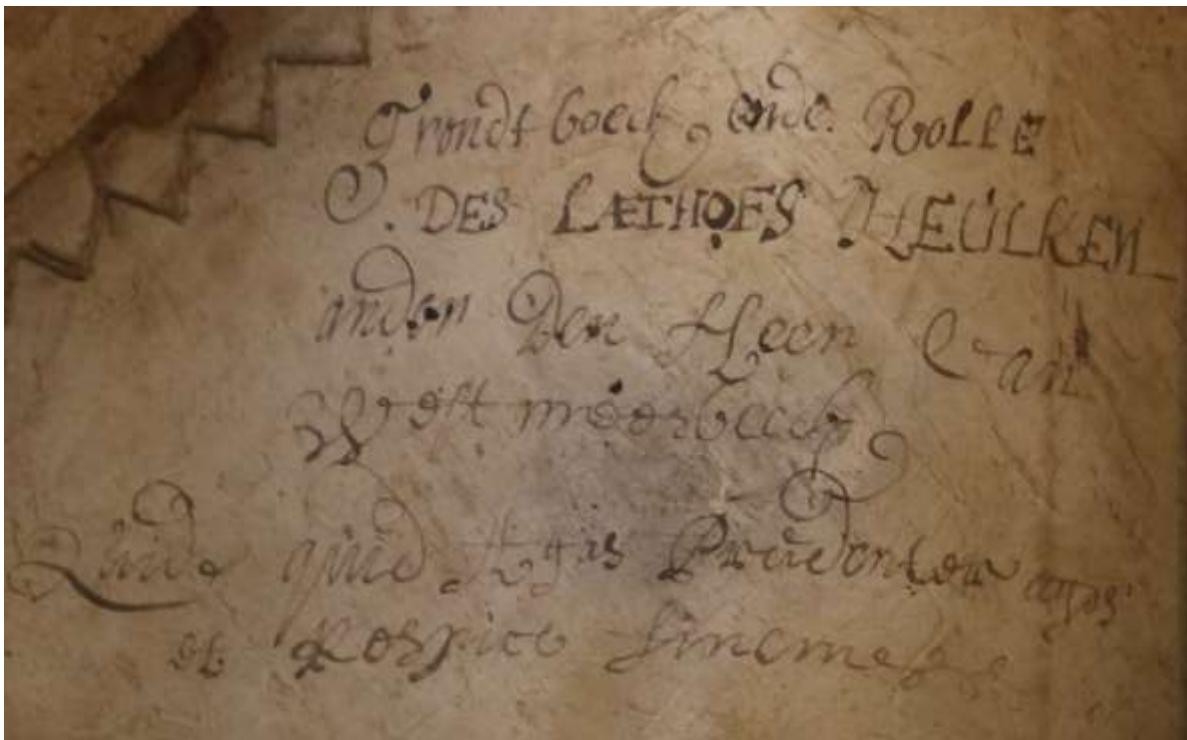 Grondt boeck ende Rolle
DES LÆTHOFS HEÚLKEN
anden Den Heer Van
West meerbeeck
quid Agis Prúdenter agas
et Respice finem